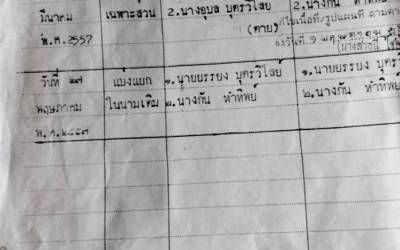 มีนาคม เฉพาะส่วน 2.นางอุบล บุตรวิไลย์ 2.นางกัน
พ.ศ.2557 (ตาย) แก้เนื้อที่/รูปแผนที่
วันที่ ๒๗ แบ่งแยก ๑.นายยรรยง บุตรวิไลย์ ๑.นายยรรยง บุตรวิ
พฤษภาคม ในนามเดิม ๒.นางกัน ทำทิพย์ ๒.นางกัน ทำทิพย์
พ.ศ.๒๕๕๗